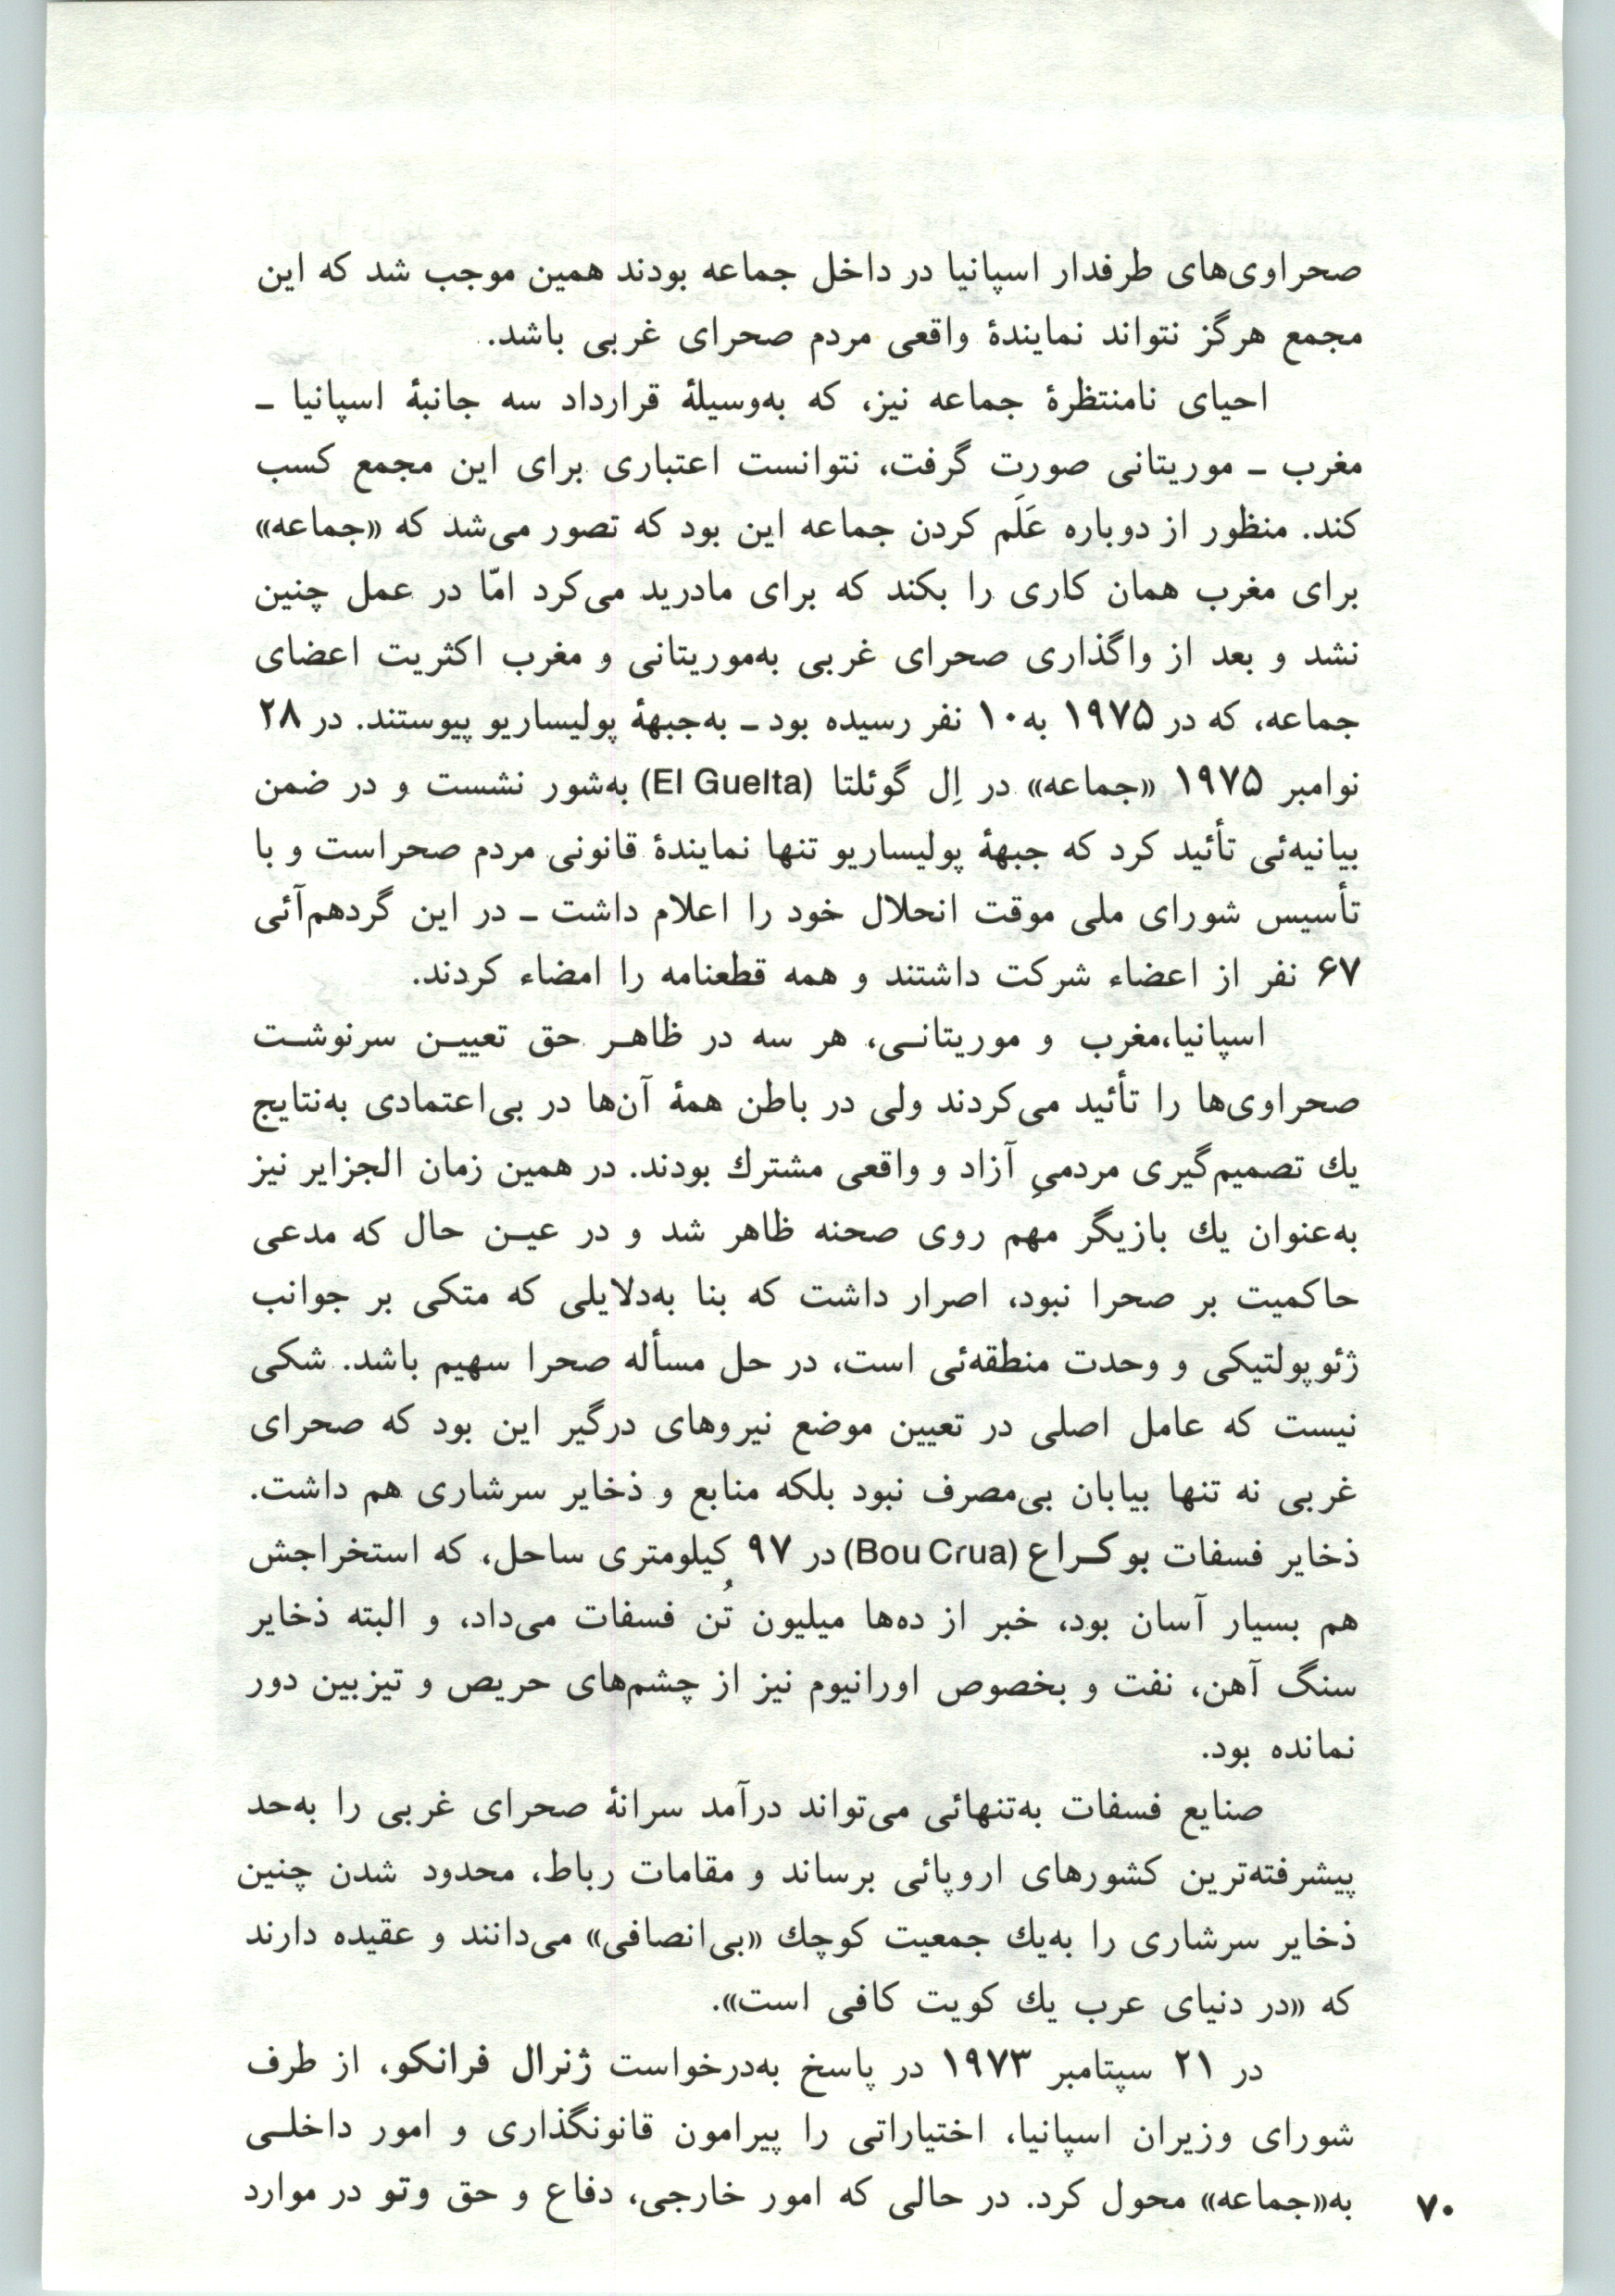 صحراوی‌های طرفدار اسپانیا در داخل جماعه بودند همین موجب شد که این
مجمع هرگز نتواند نمایندۀ واقعی مردم صحرای غربی باشد.
احیای نامنتظرۀ جماعه نیز، که به‌وسیلۀ قرارداد سه جانبۀ اسپانیا ـ
مغرب ـ موریتانی صورت گرفت، نتوانست اعتباری برای این مجمع کسب
کند. منظور از دوباره عَلَم کردن جماعه این بود که تصور می‌شد که «جماعه»
برای مغرب همان کاری را بکند که برای مادرید می‌کرد امّا در عمل چنین
نشد و بعد از واگذاری صحرای غربی به‌موریتانی و مغرب اکثریت اعضای
جماعه، که در ۱۹۷۵ به۱۰ نفر رسیده بود ـ به‌جبهۀ پولیساریو پیوستند. در ۲۸
نوامبر ۱۹۷۵ «جماعه» در اِل گوئلتا (El Guelta) به‌شور نشست و در ضمن
بیانیه‌ئی تأئید کرد که جبهۀ پولیساریو تنها نمایندۀ قانونی مردم صحراست و با
تأسیس شورای ملی موقت انحلال خود را اعلام داشت ـ در این گردهم‌آئی
۶۷ نفر از اعضاء شرکت داشتند و همه قطعنامه را امضاء کردند.
اسپانیا،مغرب و موریتانـی، هر سه در ظاهـر حق تعییـن سرنوشـت
صحراوی‌ها را تأئید می‌کردند ولی در باطن همۀ آن‌ها در بی‌اعتمادی به‌نتایج
یك تصمیم‌گیری مردمیِ آزاد و واقعی مشترك بودند. در همین زمان الجزایر نیز
به‌عنوان یك بازیگر مهم روی صحنه ظاهر شد و در عیـن حال که مدعی
حاکمیت بر صحرا نبود، اصرار داشت که بنا به‌دلایلی که متکی بر جوانب
ژئوپولتیکی و وحدت منطقه‌ئی است، در حل مسأله صحرا سهیم باشد. شکی
نیست که عامل اصلی در تعیین موضع نیروهای درگیر این بود که صحرای
غربی نه تنها بیابان بی‌مصرف نبود بلکه منابع و ذخایر سرشاری هم داشت.
ذخایر فسفات بوکـراع (Bou Crua) در ۹۷ کیلومتری ساحل، که استخراجش
هم بسیار آسان بود، خبر از ده‌ها میلیون تُن فسفات می‌داد، و البته ذخایر
سنگ آهن، نفت و بخصوص اورانیوم نیز از چشم‌های حریص و تیزبین دور
نمانده بود.
صنایع فسفات به‌تنهائی می‌تواند درآمد سرانۀ صحرای غربی را به‌حد
پیشرفته‌ترین کشورهای اروپائی برساند و مقامات رباط، محدود شدن چنین
ذخایر سرشاری را به‌یك جمعیت کوچك «بی‌انصافی» می‌دانند و عقیده دارند
که «در دنیای عرب یك کویت کافی است».
در ۲۱ سپتامبر ۱۹۷۳ در پاسخ به‌درخواست ژنرال فرانکو، از طرف
شورای وزیران اسپانیا، اختیاراتی را پیرامون قانونگذاری و امور داخلـی
به«جماعه» محول کرد. در حالی که امور خارجی، دفاع و حق وتو در موارد
۷۰